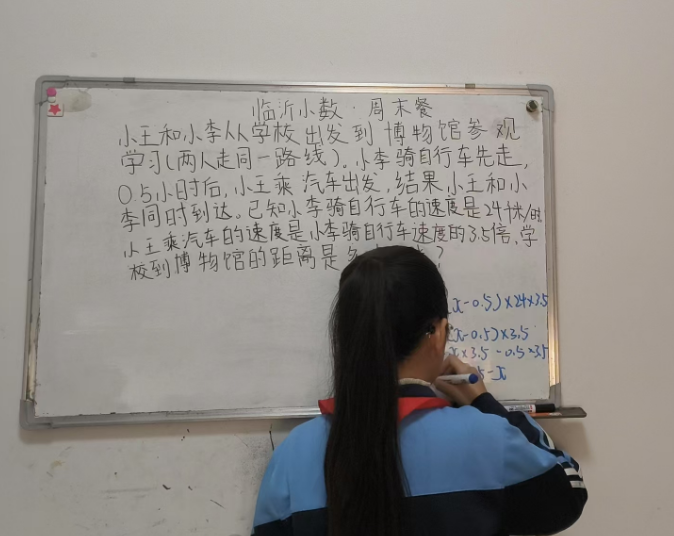 临沂小数·周末餐
小王和小李从学校出发到博物馆参观
学习(两人走同一路线)。小李骑自行车先走,
0.5小时后,小王乘汽车出发,结果小王和小
李同时到达。已知小李骑自行车的速度是24千米/时
小王乘汽车的速度是小李骑自行车速度的3.5倍,学
校到博物馆的距离是多?
x-0.5)×24×3.5
x-0.5)×3.5
x×3.5-0.5×3.5
-x